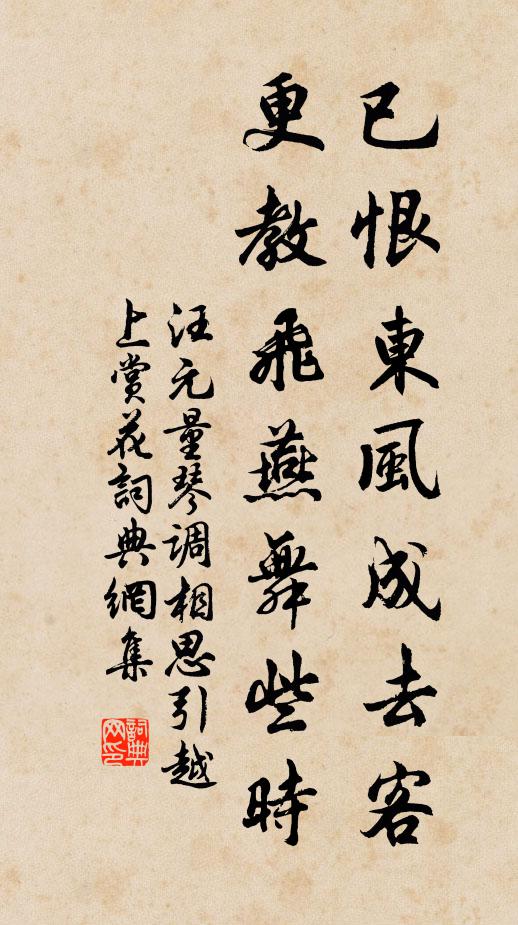 已恨東風成去客
更教飛燕舞些時
汪元量琴調相思引越
上賞花詞典網集
詞典网印